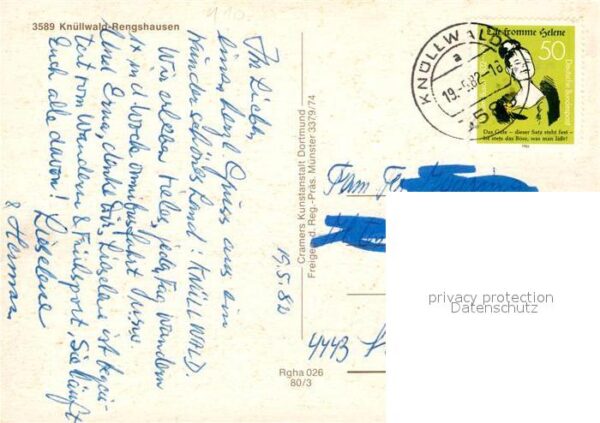 3589 Knüllwald-Rengshausen
Ihr Lieben,
einen herzl. Gruss aus ein
wunderschönes Land! KNÜLLWALD.
Wir erleben vieles, jeden Tag wandern
1x in d. Woche Omnibusfahrt
Und Erna, denke Dir, Lieselene ist begeis-
tert vom Wandern & Frühsport, Sie läuft
Euch alle davon! Lieselene
& Herman
19.5.82
Cramers Kunstanstalt Dortmund
Freigeg. d. Reg.-Präs. Münster 337/9/74
Rgha 026
80/3
KNÜLLWALD
a
19.-5.82-18
Die fromme Helene
50
Deutsche Bundespost
Das Gute – dieser Satz steht fest –
ist stets das Böse, was man läßt!
Fam
4443
privacy protection
Datenschutz